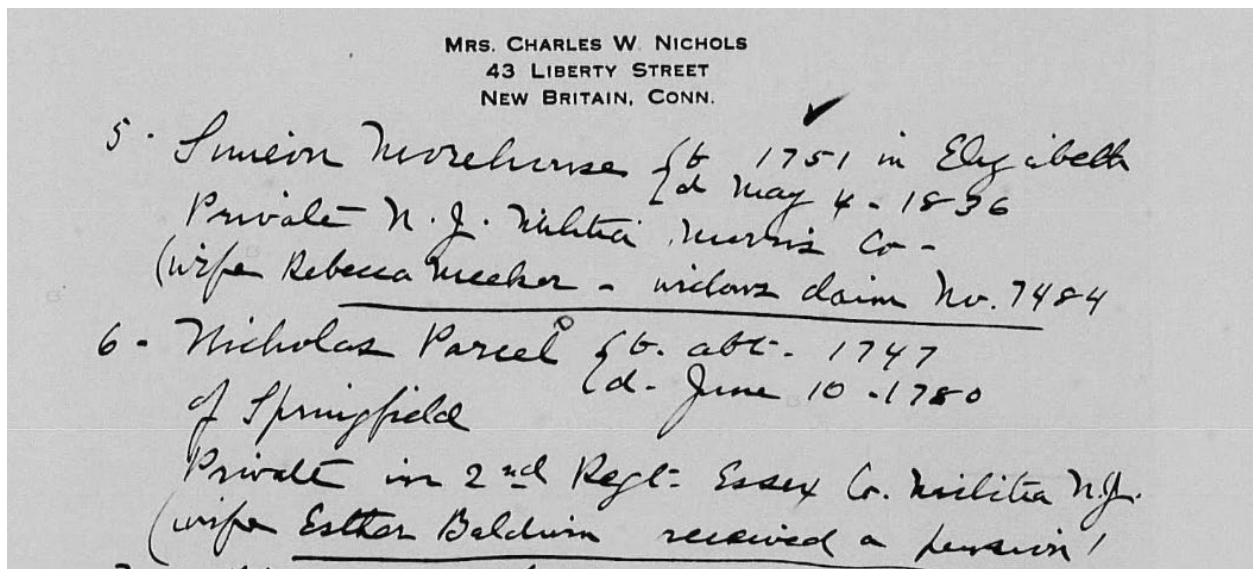 MRS. CHARLES W. NICHOLS
43 LIBERTY STREET
NEW BRITAIN, CONN.
5. Simeon Morehouse { b 1751 in Elizabeth
{ d May 4 - 1836
Private N. J. Militia, Morris Co -
(wife Rebecca Meeker - widows claim No. 7484
6 - Nicholas Parcel { b. abt. 1747
{ d - June 10 - 1780
of Springfield
Private in 2nd Regt- Essex Co. Militia N.J.
(wife Esther Baldwin received a pension)